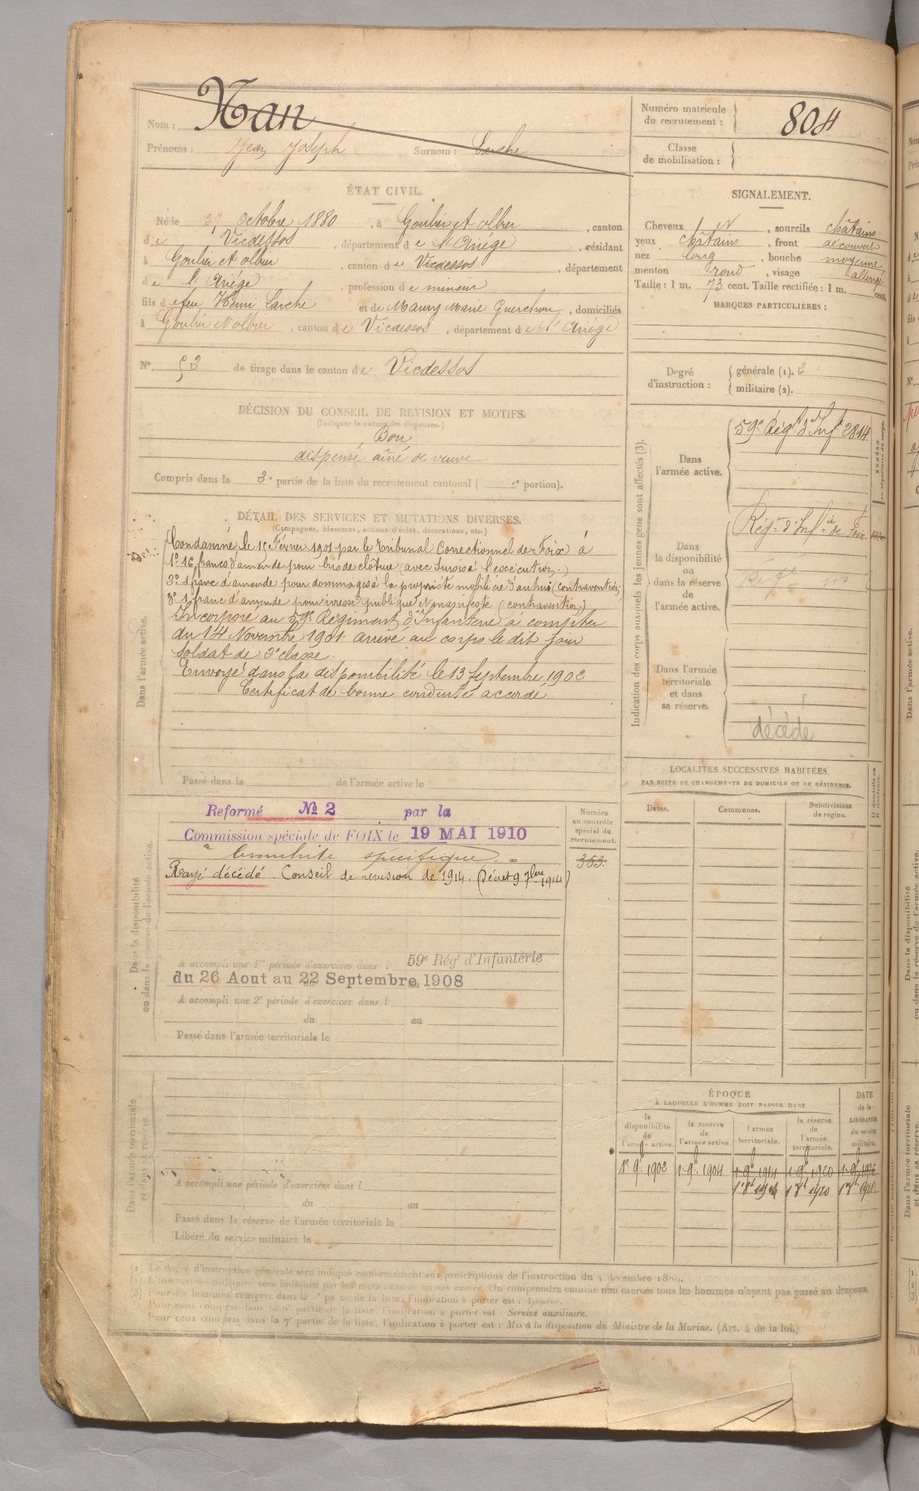 Nom : Xan
Prénoms : Jean Joseph Surnom :
Numéro matricule du recrutement : 804
Classe de mobilisation :
ÉTAT CIVIL.
Né le 27 octobre 1880, à Goulier et olbier, canton
de Vicdessos, département de l'Ariège, résidant
à Goulier et olbier, canton de Vicdessos, département
de l'Ariège, profession de mineur
fils de feu et de Maury Marie, domiciliés
à Goulier et olbier, canton de Vicdessos, département de l'Ariège
N° 53 de tirage dans le canton de Vicdessos
SIGNALEMENT.
Cheveux et, sourcils châtains
yeux châtain, front découvert
nez long, bouche moyenne
menton rond, visage allongé
Taille : 1 m. 73 cent. Taille rectifiée : 1 m. cent.
MARQUES PARTICULIÈRES :
Degré d'instruction : générale (1). 2
militaire (2).
DÉCISION DU CONSEIL DE REVISION ET MOTIFS.
(Indiquer la nature des dispenses.)
Bon
dispensé aîné de veuve
Compris dans la 3e partie de la liste du recrutement cantonal ( e portion).
DÉTAIL DES SERVICES ET MUTATIONS DIVERSES.
(Campagnes, blessures, actions d'éclat, décorations, etc.)
Condamné le 1er Février 1901 par le Tribunal Correctionnel de Foix à
1° 16 francs d'amende pour bris de clôture (avec sursis à l'exécution)
2° 1 franc d'amende pour dommages à la propriété mobilière d'autrui (contravention)
3° 1 franc d'amende pour ivresse publique et manifeste (contravention)
Incorporé au 59e Régiment d'Infanterie à compter
du 14 Novembre 1901 arrivé au corps le dit jour
soldat de 2e classe.
Envoyé dans la disponibilité le 13 Septembre 1902
Certificat de bonne conduite accordé
Dans l'armée active.
Passé dans la de l'armée active le
Indication des corps auxquels les jeunes gens sont affectés (3).
Dans l'armée active.
59e Régt d'Inft
Dans la disponibilité ou dans la réserve de l'armée active.
Régt d'Inft de Foix
Dans l'armée territoriale et dans sa réserve.
décédé
Réformé N° 2 par la
Commission spéciale de FOIX le 19 MAI 1910
Rayé décédé. Conseil de révision de 1914. (Décret 9 7bre 1914)
Numéro au contrôle spécial du recrutement.
363
Dans la disponibilité ou dans la réserve de l'armée active.
A accompli une 1re période d'exercices dans l 59e Régt d'Infanterie
du 26 Aout au 22 Septembre 1908
A accompli une 2e période d'exercices dans l
du au
Passé dans l'armée territoriale le
LOCALITÉS SUCCESSIVES HABITÉES
PAR SUITE DE CHANGEMENTS DE DOMICILE OU DE RÉSIDENCE.
Dates. Communes. Subdivisions de région.
Dans l'armée territoriale et dans sa réserve.
A accompli une période d'exercices dans l
du au
Passé dans la réserve de l'armée territoriale le
Libéré du service militaire le
ÉPOQUE
À LAQUELLE L'HOMME DOIT PASSER DANS
la disponibilité de l'armée active.
la réserve de l'armée active.
l'armée territoriale.
la réserve de l'armée territoriale.
DATE de la LIBÉRATION du service militaire.
(1) Le degré d'instruction générale sera indiqué conformément aux prescriptions de l'instruction du 4 décembre 1889.
Pour ceux compris dans la 6e partie de la liste, l'indication à porter est : Service auxiliaire.
Pour ceux compris dans la 7e partie de la liste, l'indication à porter est : Mis à la disposition du Ministre de la Marine. (Art. 4 de la loi.)